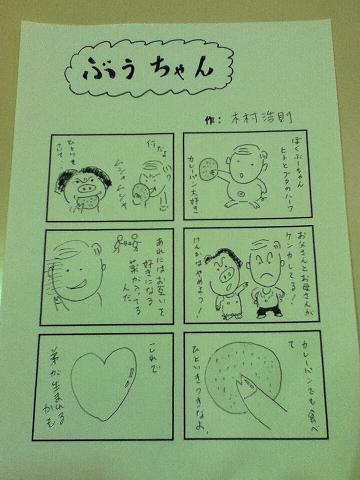 ぶうちゃん
作: 木村浩則
ぼくぶーちゃん
ヒトとブタのハーフ
カレーパン大好き
行だよ
ムシャムシャ
ひといきも
お父さんとお母さんが
ケンカしてる!
けんかはやめよう!
あれにはお互いを
好きになる
薬が入ってる
んだ
カレーパンでも食べ
て
ひといきつきなよ。
これで
弟が生まれる
かも